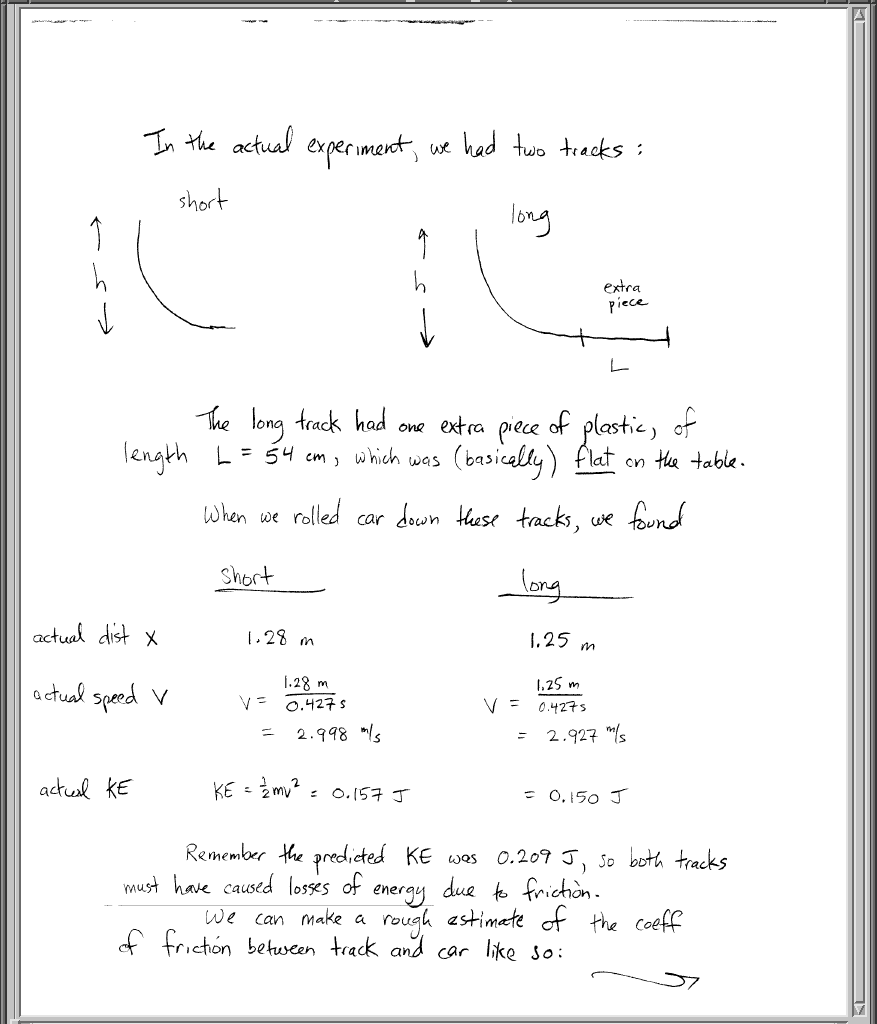 In the actual experiment, we had two tracks :
short
long
h
h
extra
piece
L
The long track had one extra piece of plastic, of
length L = 54 cm, which was (basically) flat on the table.
When we rolled car down these tracks, we found
short long
actual dist x 1.28 m 1.25 m
actual speed v v = 1.28 m / 0.427 s v = 1.25 m / 0.427 s
= 2.998 m/s = 2.927 m/s
actual KE KE = ½mv² = 0.157 J = 0.150 J
Remember the predicted KE was 0.209 J, so both tracks
must have caused losses of energy due to friction.
We can make a rough estimate of the coeff
of friction between track and car like so: